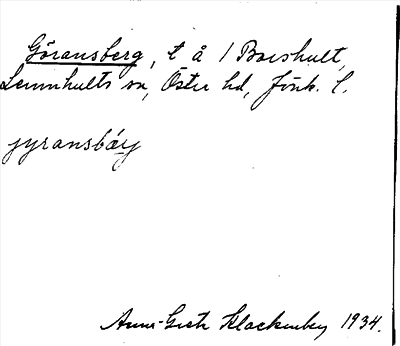 Göransberg, t å 1 Boeshult,
Lemnhults sn, Östra hd, Jönk. l.
jyransbärj
Anna-Greta Klackenberg 1934.